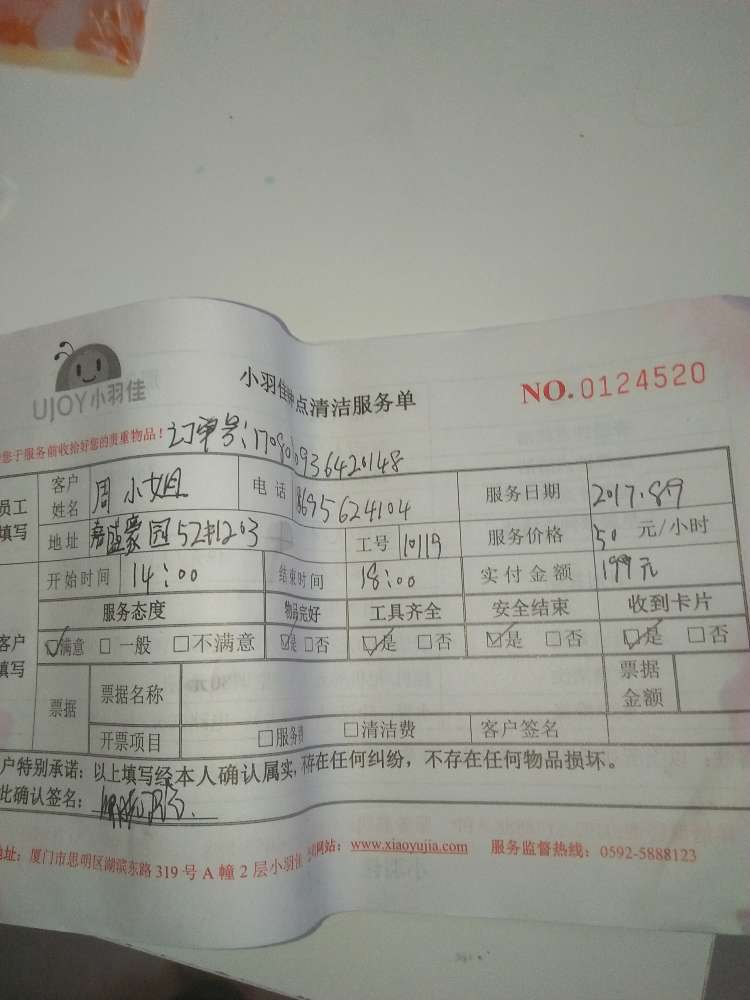 UJOY小羽佳
小羽佳 点清洁服务单
NO.0124520
您于服务前收拾好您的贵重物品！
订单号：
员工填写 客户姓名 周小姐 电话 18695624104 服务日期 2017.8.9
地址 52#1203 工号 10119 服务价格 50 元/小时
开始时间 14：00 结束时间 18：00 实付金额 199元
服务态度 物品完好 工具齐全 安全结束 收到卡片
客户填写 ☑满意 □一般 □不满意 ☑是 □否 ☑是 □否 ☑是 □否 ☑是 □否
票据 票据名称 票据金额
开票项目 □服务费 □清洁费 客户签名
户特别承诺：以上填写经本人确认属实，不存在任何纠纷，不存在任何物品损坏。
此确认签名：
地址：厦门市思明区湖滨东路319号A幢2层小羽佳 网站：www.xiaoyujia.com 服务监督热线：0592-5888123